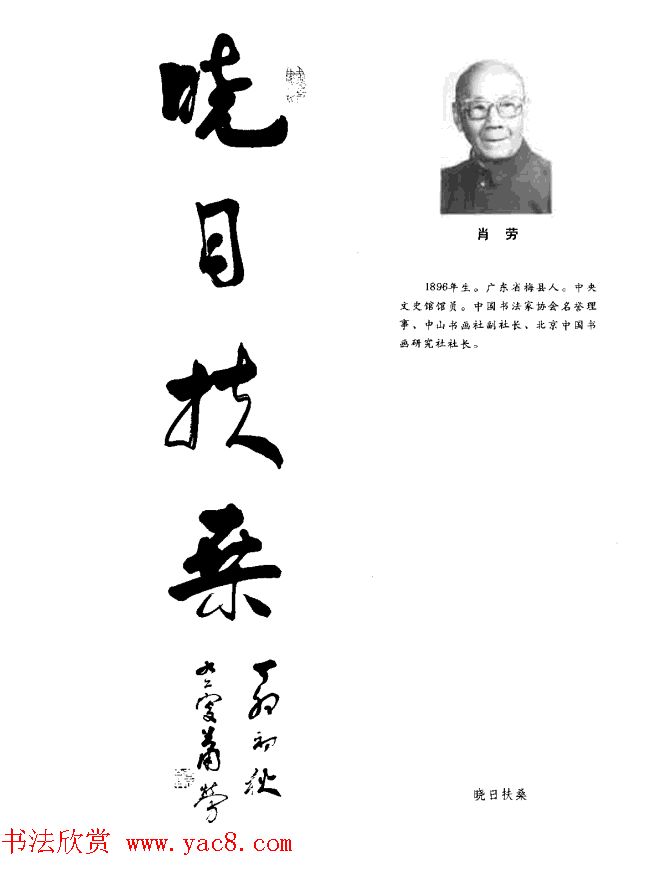 晓日扶桑
丁卯初秋
九二叟蕭勞
肖 劳
1896年生。广东省梅县人。中央
文史馆馆员。中国书法家协会名誉理
事、中山书画社副社长、北京中国书
画研究社社长。
晓日扶桑
书法欣赏 www.yac8.com